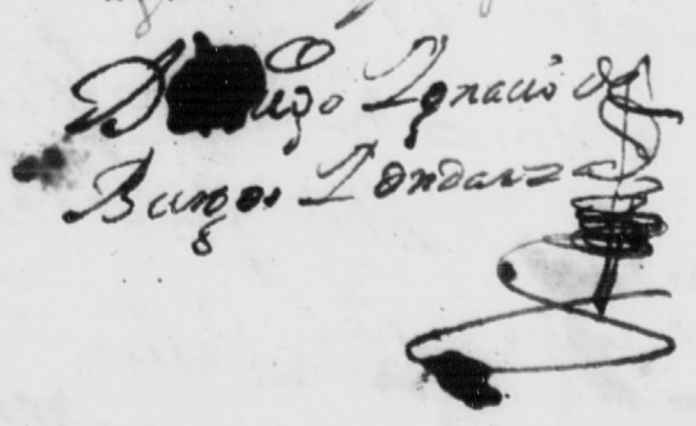 Diego Ignacio de
Burgos I Ondarza